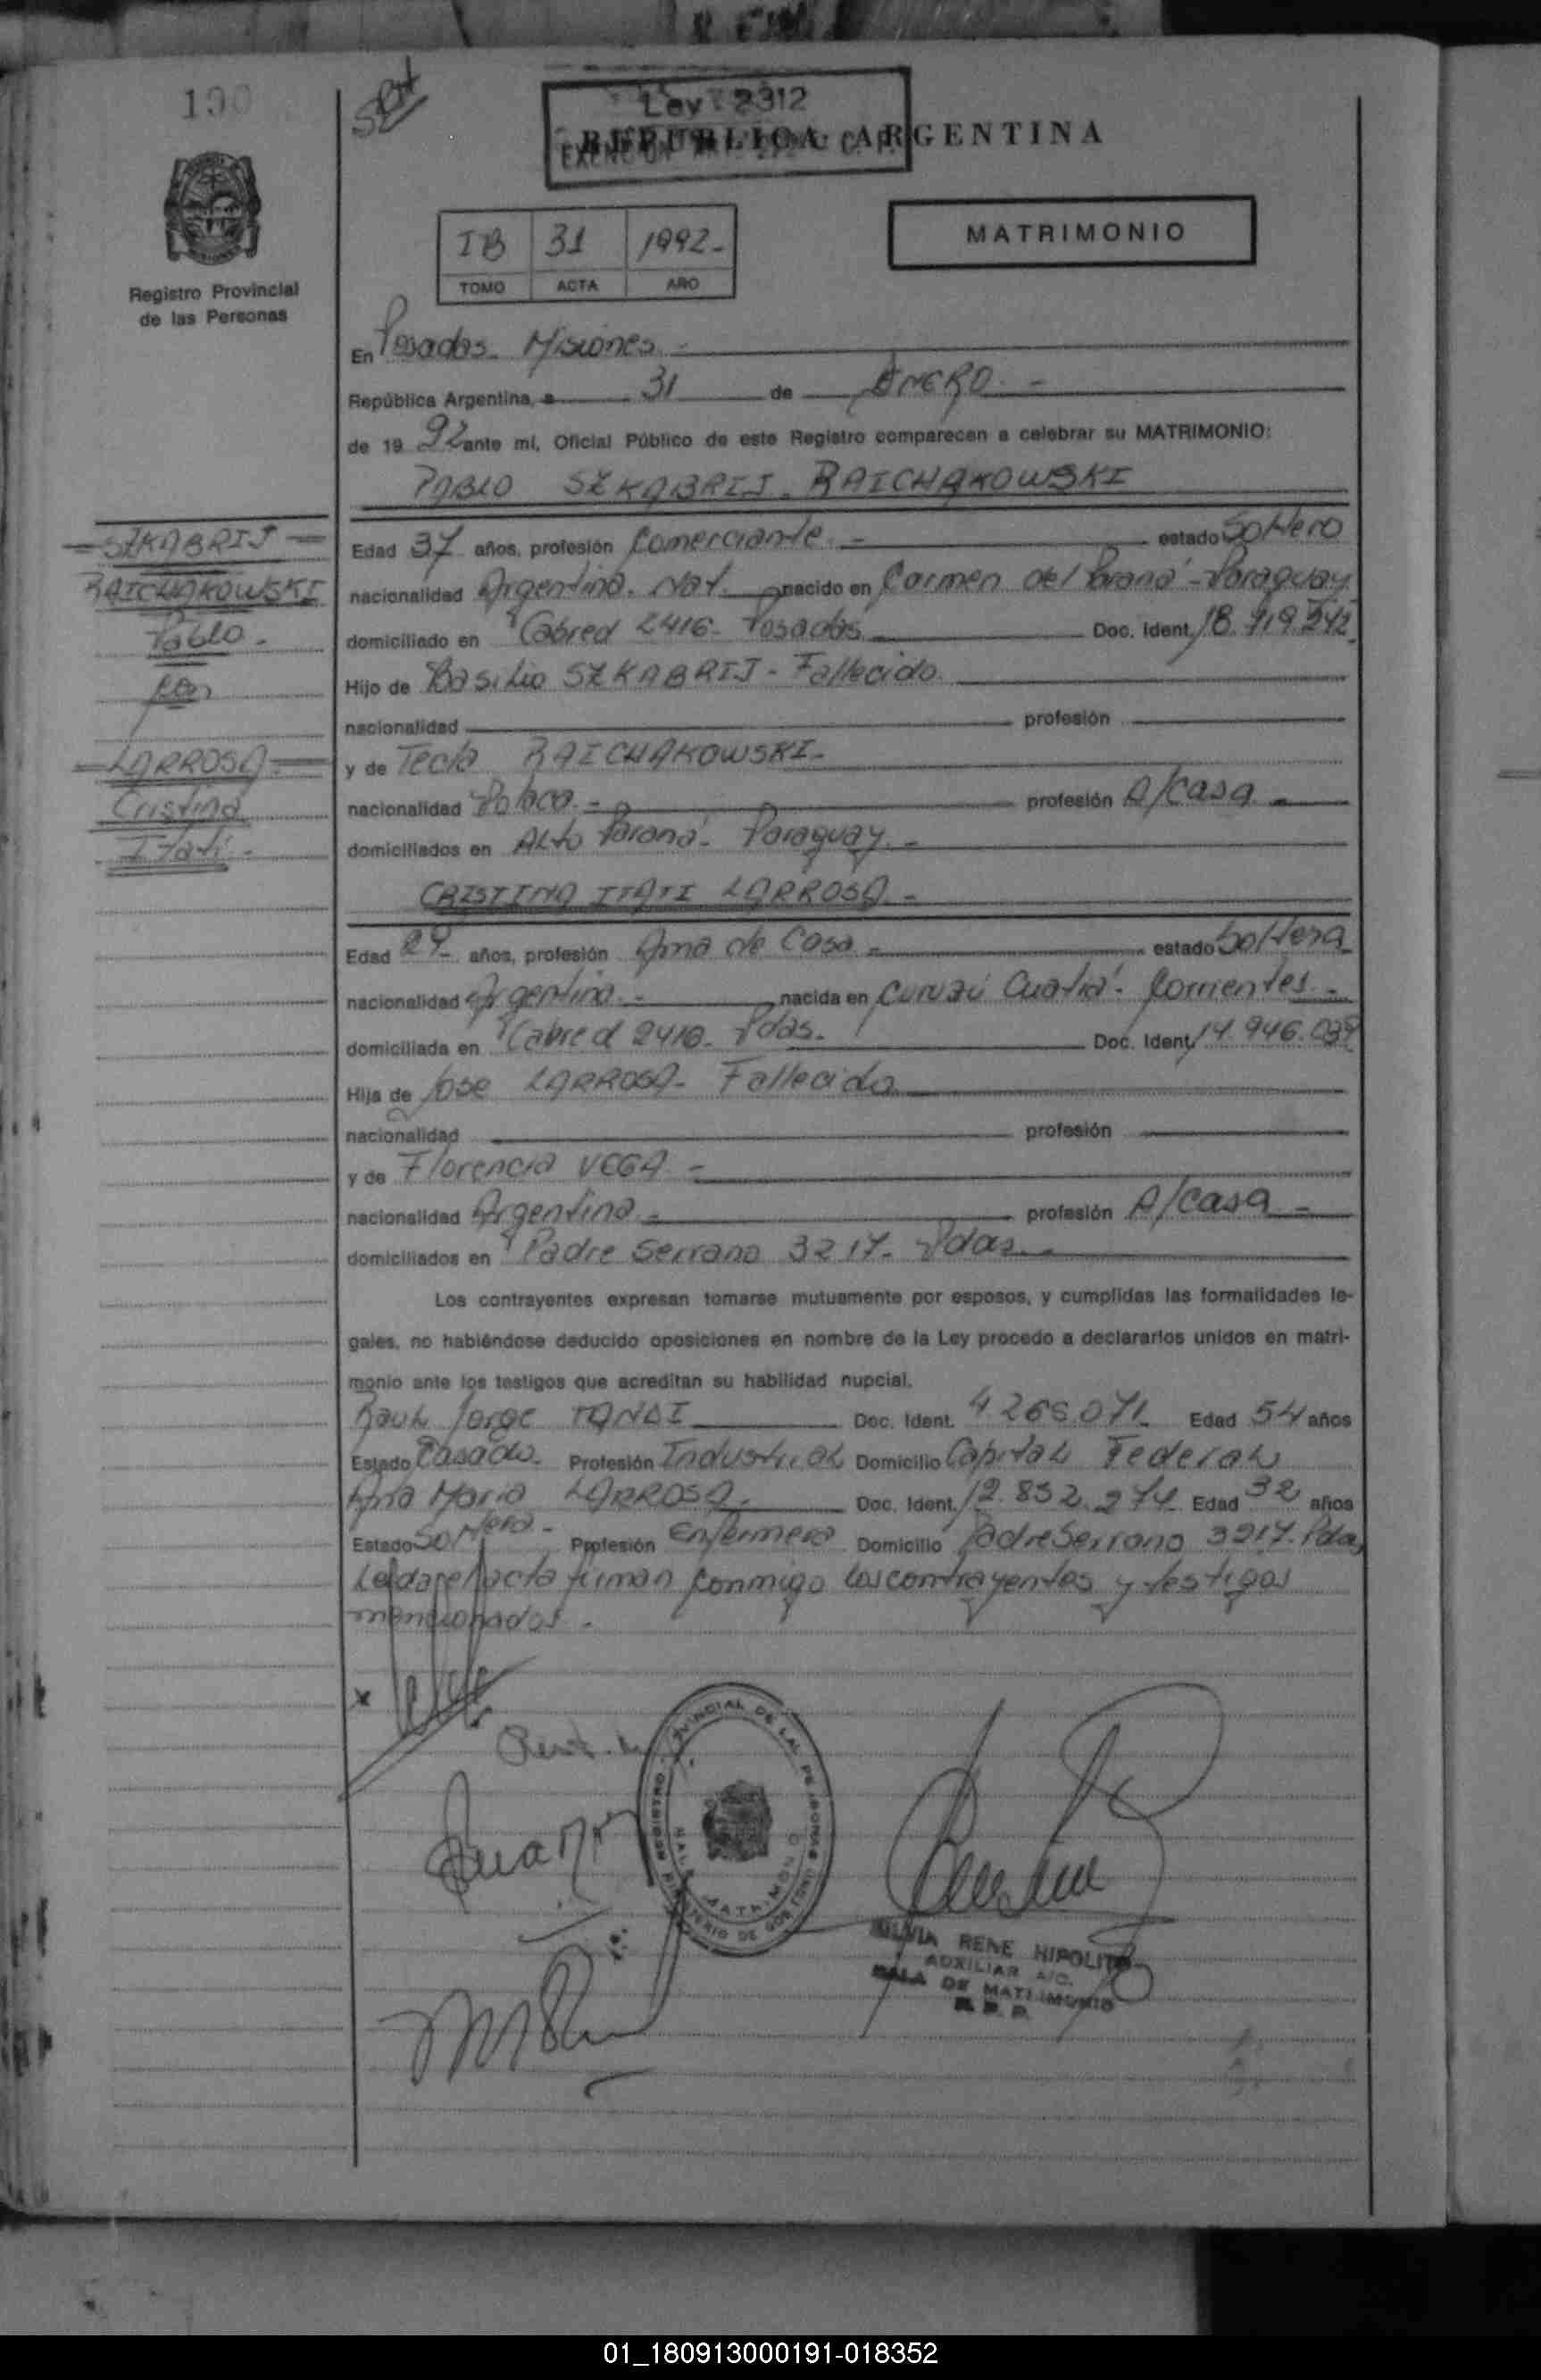 190
Ley 2312
REPUBLICA ARGENTINA
IB 31 1992-
TOMO ACTA AÑO
MATRIMONIO
Registro Provincial
de las Personas
En Posadas Misiones -
República Argentina, a 31 de ENERO -
de 19 92 ante mí, Oficial Público de este Registro comparecen a celebrar su MATRIMONIO:
PABLO SZKABRIJ - RAICHAKOWSKI
SZKABRIJ
RAICHAKOWSKI
Pablo -
con
LARROSA
Cristina
Itatí -
Edad 37 años, profesión Comerciante - estado Soltero
nacionalidad Argentina. Nat. nacido en Carmen del Paraná - Paraguay
domiciliado en Cabred 2416 - Posadas Doc. Ident. 18.719.242
Hijo de Basilio SZKABRIJ - Fallecido
nacionalidad profesión
y de Tecla RAICHAKOWSKI -
nacionalidad Polaca - profesión A/casa -
domiciliados en Alto Paraná - Paraguay -
CRISTINA ITATI LARROSA -
Edad 29 años, profesión Ama de Casa - estado Soltera
nacionalidad Argentina - nacida en Curuzú Cuatiá - Corrientes -
domiciliada en Cabred 2416 - Pdas. Doc. Ident. 14.946.039
Hija de Jose LARROSA - Fallecido
nacionalidad profesión
y de Florencia VEGA -
nacionalidad Argentina - profesión A/casa -
domiciliados en Padre Serrano 3217 - Pdas. -
Los contrayentes expresan tomarse mutuamente por esposos, y cumplidas las formalidades le-
gales, no habiéndose deducido oposiciones en nombre de la Ley procedo a declararlos unidos en matri-
monio ante los testigos que acreditan su habilidad nupcial.
Raul Jorge TANDI Doc. Ident. 4.266.071 Edad 54 años
Estado Casado - Profesión Industrial Domicilio Capital Federal
Ana Maria LARROSA - Doc. Ident. 12.852.274 Edad 32 años
Estado Soltera - Profesión Enfermera Domicilio Padre Serrano 3217 - Pdas
Leida el acta firman conmigo los contrayentes y testigos
mencionados -
x
SILVIA RENE HIPOLITO
AUXILIAR A/C.
SALA DE MATRIMONIO
R. P. P.
01_180913000191-018352